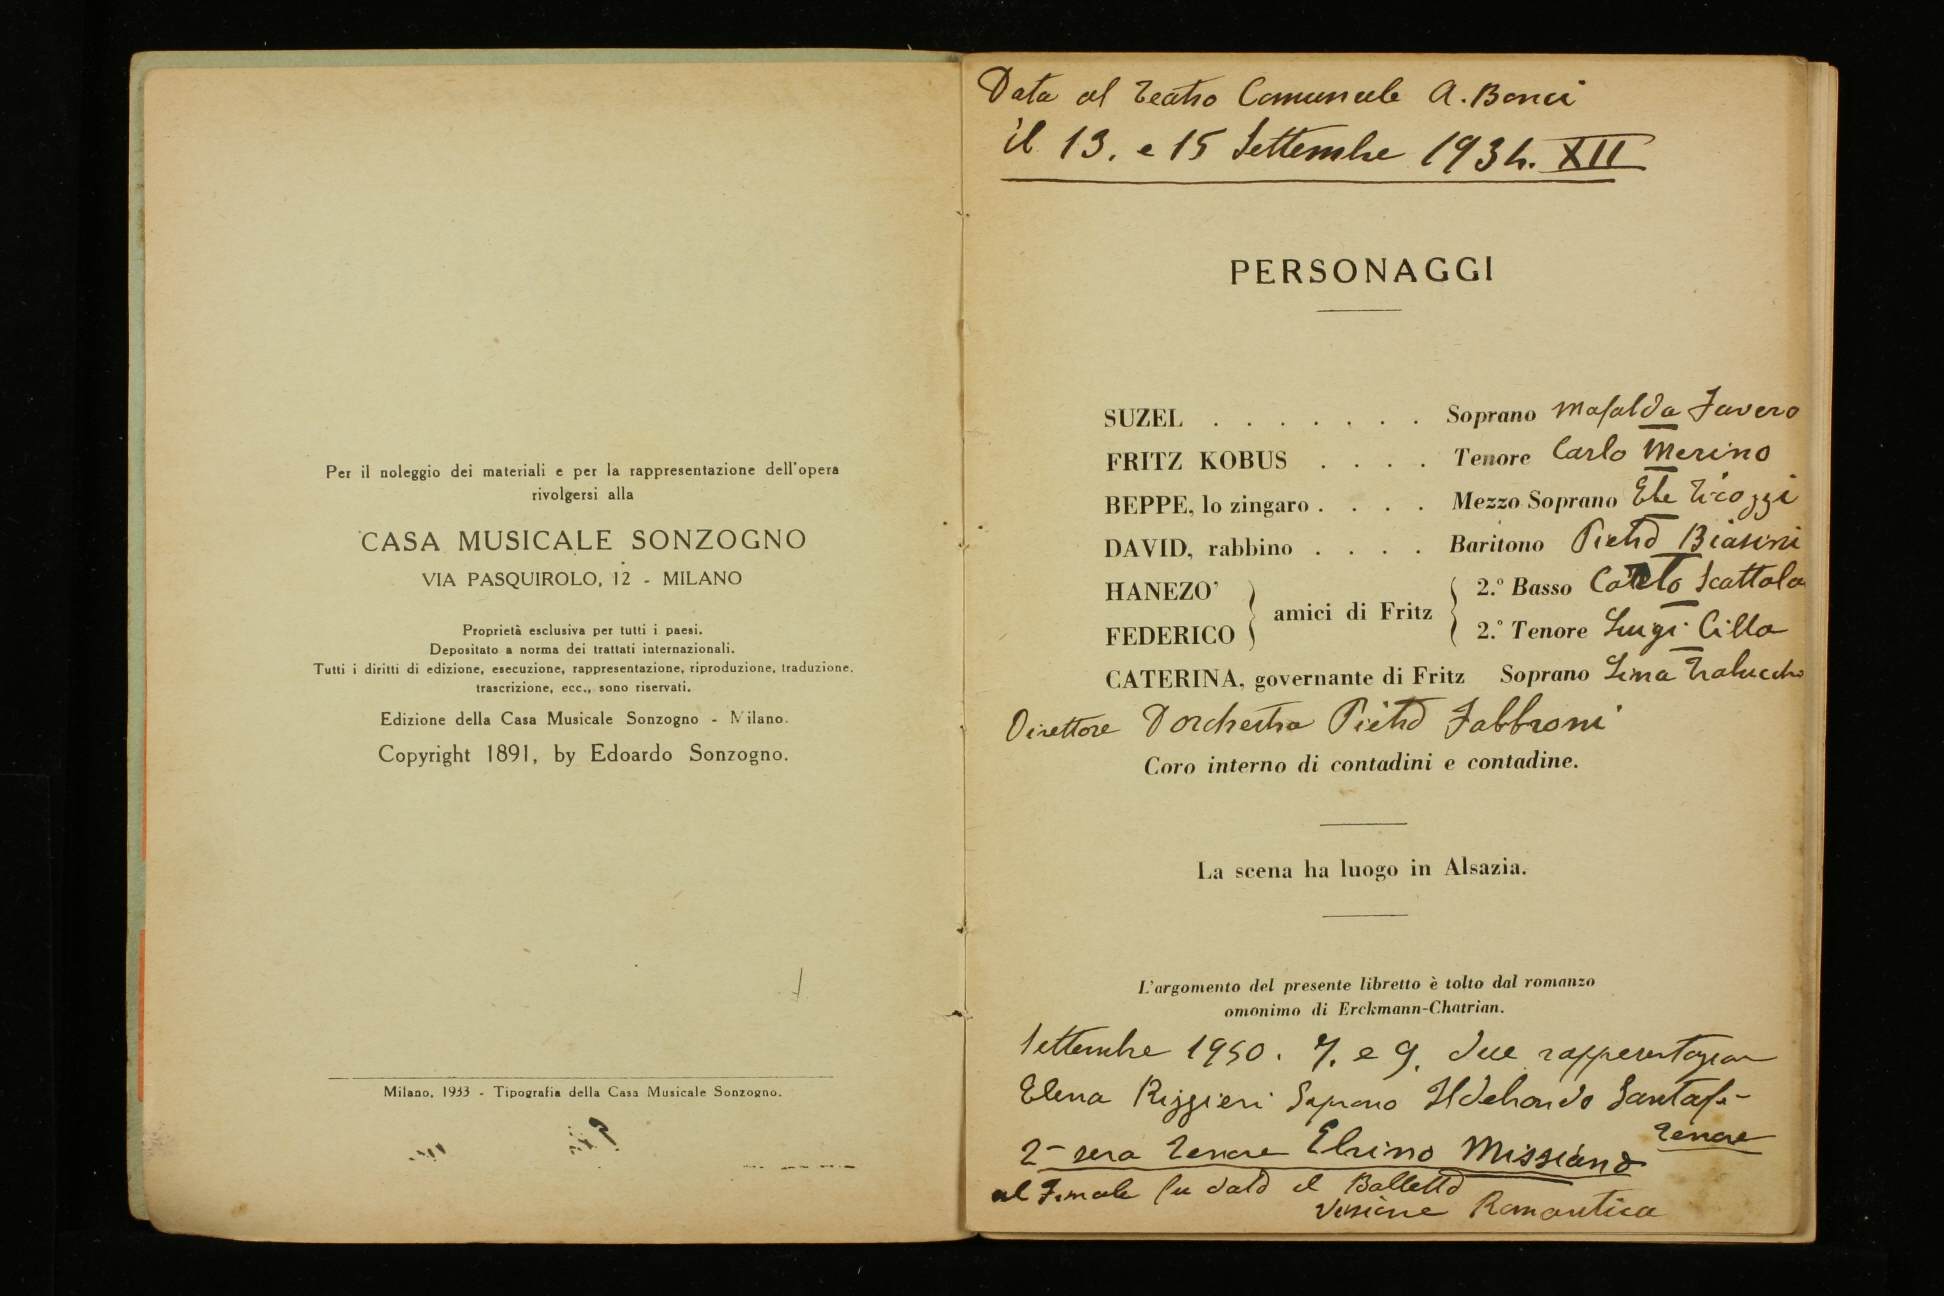 Per il noleggio dei materiali e per la rappresentazione dell'opera
rivolgersi alla
CASA MUSICALE SONZOGNO
VIA PASQUIROLO, 12 - MILANO
Proprietà esclusiva per tutti i paesi.
Depositato a norma dei trattati internazionali.
Tutti i diritti di edizione, esecuzione, rappresentazione, riproduzione, traduzione.
trascrizione, ecc., sono riservati.
Edizione della Casa Musicale Sonzogno - Milano.
Copyright 1891, by Edoardo Sonzogno.
Milano, 1933 - Tipografia della Casa Musicale Sonzogno.
Data al Teatro Comunale A. Bonci
il 13. e 15 Settembre 1934. XII
PERSONAGGI
SUZEL . . . . . . . Soprano Mafalda Favero
FRITZ KOBUS . . . . Tenore Carlo Merino
BEPPE, lo zingaro . . . . Mezzo Soprano Ebe Ticozzi
DAVID, rabbino . . . . Baritono Pietro Biasini
HANEZO' } amici di Fritz { 2.º Basso Carlo Scattola
FEDERICO } 2.º Tenore Luigi Cilla
CATERINA, governante di Fritz Soprano Lina
Direttore D'orchestra Pietro Fabbroni
Coro interno di contadini e contadine.
La scena ha luogo in Alsazia.
L'argomento del presente libretto è tolto dal romanzo
omonimo di Erckmann-Chatrian.
Settembre 1950. 7. e 9. due
Elena Rizzieri Soprano Ildebrando Santafe
Tenore
2ª sera Tenore Elvino Missiano
al Finale fu dato il Balletto
Visione Romantica